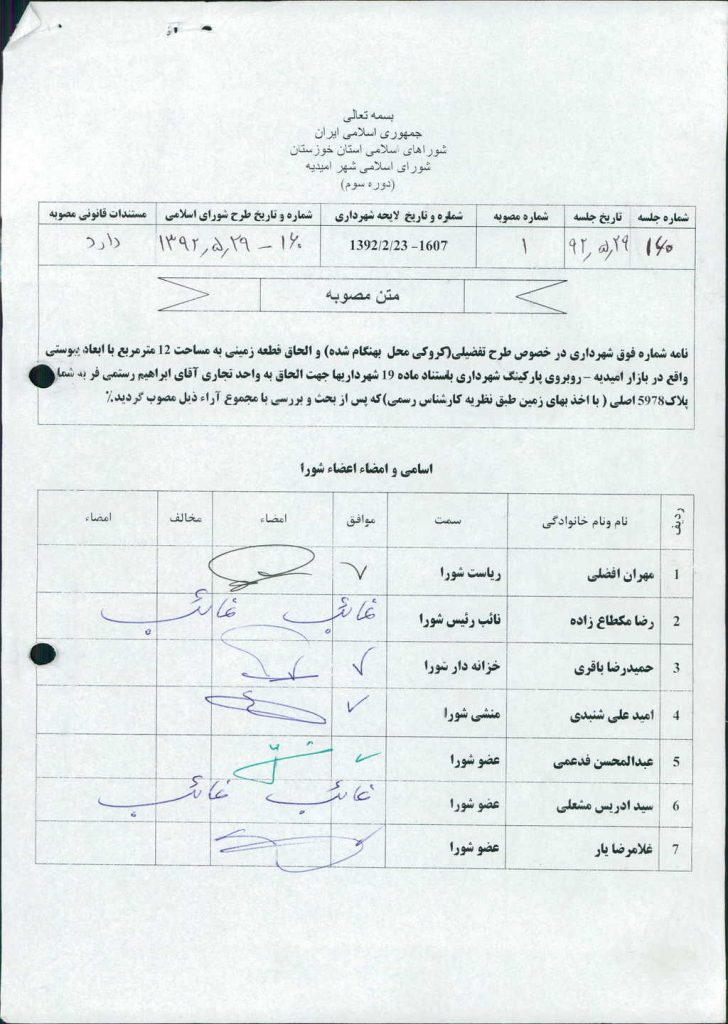 بسمه تعالی
جمهوری اسلامی ایران
شوراهای اسلامی استان خوزستان
شورای اسلامی شهر امیدیه
(دوره سوم)
شماره جلسه تاریخ جلسه شماره مصوبه شماره و تاریخ لایحه شهرداری شماره و تاریخ طرح شورای اسلامی مستندات قانونی مصوبه
۱۶۰ ۹۲٫۵٫۲۹ ۱ 1392/2/23 -1607 ۱۶۰ – ۱۳۹۲٫۵٫۲۹ دارد
متن مصوبه
نامه شماره فوق شهرداری در خصوص طرح تفضیلی(کروکی محل بهنگام شده) و الحاق قطعه زمینی به مساحت 12 مترمربع با ابعاد پیوستی
واقع در بازار امیدیه – روبروی پارکینگ شهرداری باستناد ماده 19 شهرداریها جهت الحاق به واحد تجاری آقای ابراهیم رستمی فر به شما
پلاک5978 اصلی ( با اخذ بهای زمین طبق نظریه کارشناس رسمی)که پس از بحث و بررسی با مجموع آراء ذیل مصوب گردید.٪
اسامی و امضاء اعضاء شورا
ردیف نام ونام خانوادگی سمت موافق امضاء مخالف امضاء
1 مهران افضلی ریاست شورا ✓
2 رضا مکطاع زاده نائب رئیس شورا غائب غائب
3 حمیدرضا باقری خزانه دار شورا ✓
4 امید علی شنبدی منشی شورا ✓
5 عبدالمحسن فدعمی عضو شورا ✓
6 سید ادریس مشعلی عضو شورا غائب غائب
7 غلامرضا یار عضو شورا